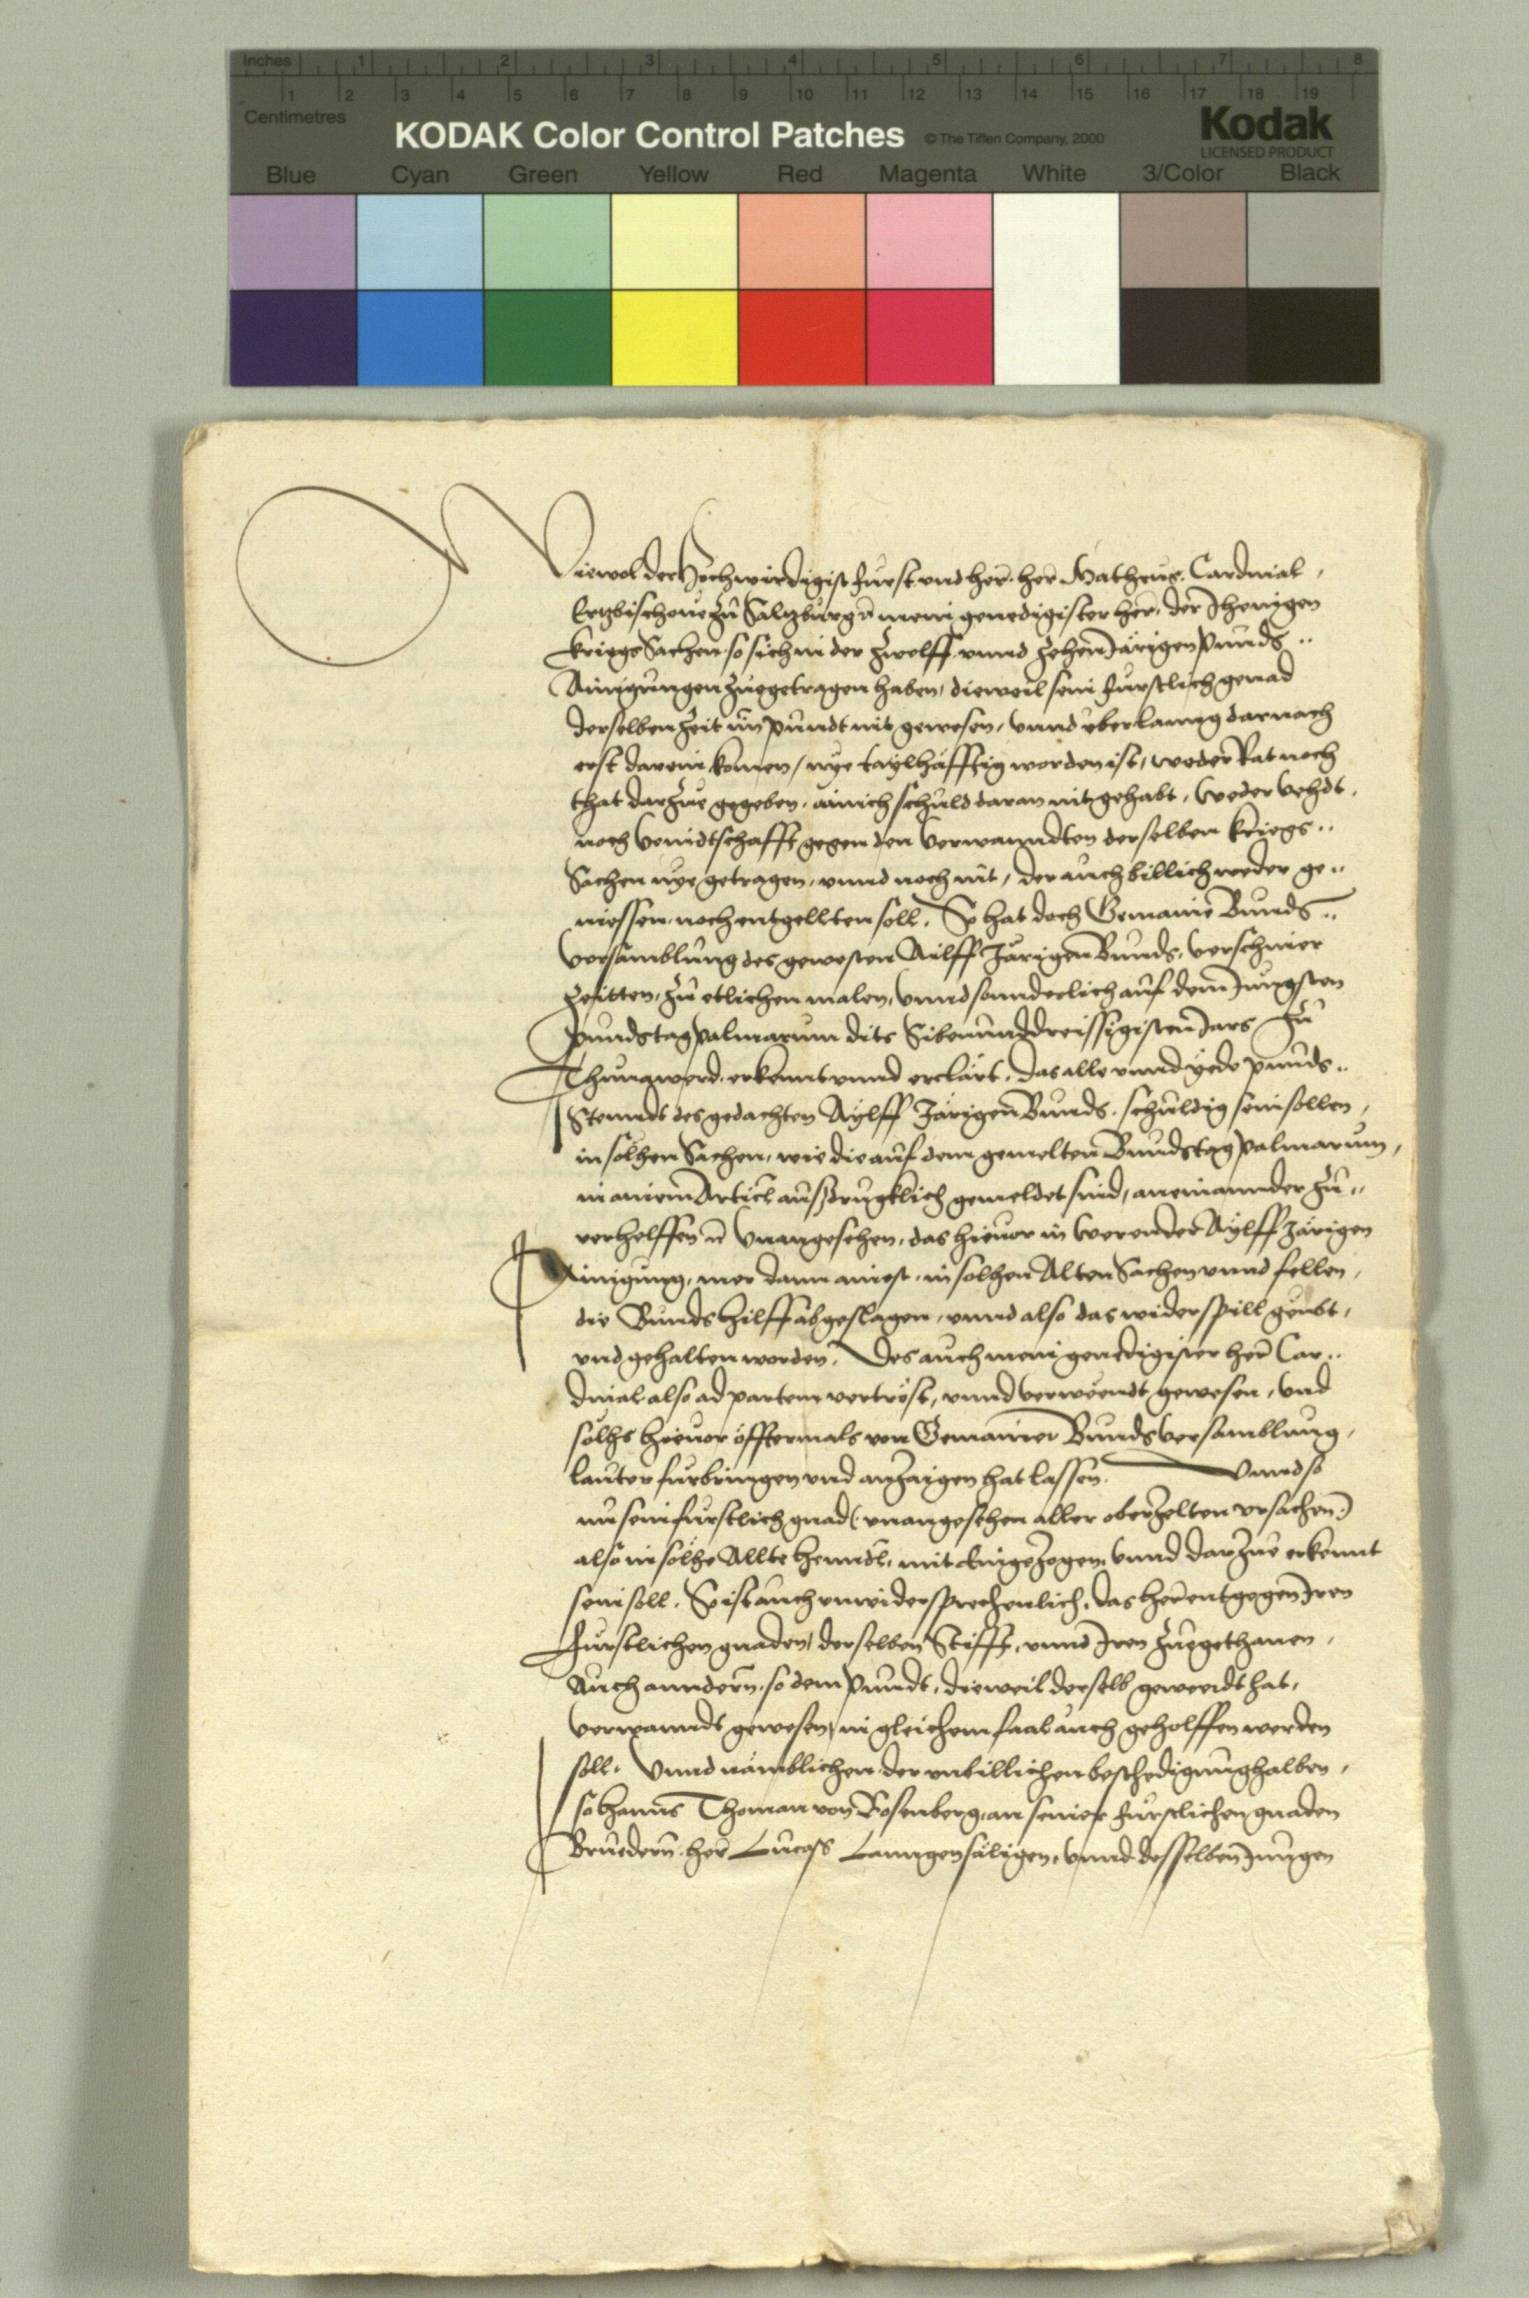 Inches 1 2 3 4 5 6 7 8
1 2 3 4 5 6 7 8 9 10 11 12 13 14 15 16 17 18 19
Centimetres
KODAK Color Control Patches © The Tiffen Company, 2000 Kodak
LICENSED PRODUCT
Blue Cyan Green Yellow Red Magenta White 3/Color Black
Wiewol der Hochwirdigist Furst und her, her Matheus, Cardinal,
Ertzbischove zu Saltzburg mein genedigister her, der Jhenigen
kriegs Sachen, so sich in der Zwelff unnd Zehen Järigen punds..
Ainigungen zuegetragen haben, dieweil sein furstlich genad
derselben Zeit im pundt nit gewesen, unnd uber lanng darnach
erst darein komen, nye taylhäfftig worden ist, weder Rat noch
that darzue gegeben, ainich schuld daran nit gehabt, weder vehdt,
noch veindtschafft gegen den verwanndten derselben kriegs..
Sachen nye getragen, unnd noch nit, der auch billich weder ge..
niessen, noch entgellten soll. So hat doch Gemaine Bunds..
versamblung des gewesten Ailff Järigen Bunds, verschiner
Zeitten, zu etlichen malen, unnd sonnderlich auf dem Jungsten
pundstag palmarum dits Sibenunddreissigisten Jars zu
Thunawerd, erkennt unnd erclärt, das alle unnd yede punds..
Stenndt des gedachten Aylff Järigen Bunds, schuldig sein sollen,
in solhen Sachen, wie die auf dem gemelten Bundstag palmarum,
in ainem Articl ausdrugklich gemeldet sind, aneinannder zu..
verhelffen Unangesehen, das hievor in werender Aylff Järigen
Ainigung, mer dann ainest, in solhen Alten Sachen unnd fellen,
die Bunds hilff abgeslagen, unnd also das widerspill geubt,
und gehalten worden. Des auch mein genedigister her Car..
dinal also ad partem vertröst, unnd verwendt gewesen, und
solhs hievor öfftermals von Gemainer Bunds versamblung,
lauter furbringen und anzaigen hat lassen. Unnd so
nu sein furstlich gnad (unangesehen aller oberzelten ursachen)
also in solhe Allte henndl, mit eingezogen, unnd darzue erkennt
sein soll. So ist auch unwidersprechenlich, das herentgegen Iren
Furstlichen gnaden, derselben Stifft, unnd Iren zuegethanen,
Auch anndern, so dem pundt, dieweil derselb gewerdt hat,
verwanndt gewesen, in gleichem faal auch geholffen werden
soll. Unnd nämblichen der unbillichen beschedigung halben,
so Hanns Thoman von Rosenberg, an seiner furstlichen gnaden
Bruedern, her Lucass Lanngen säligen, unnd desselben Jungen